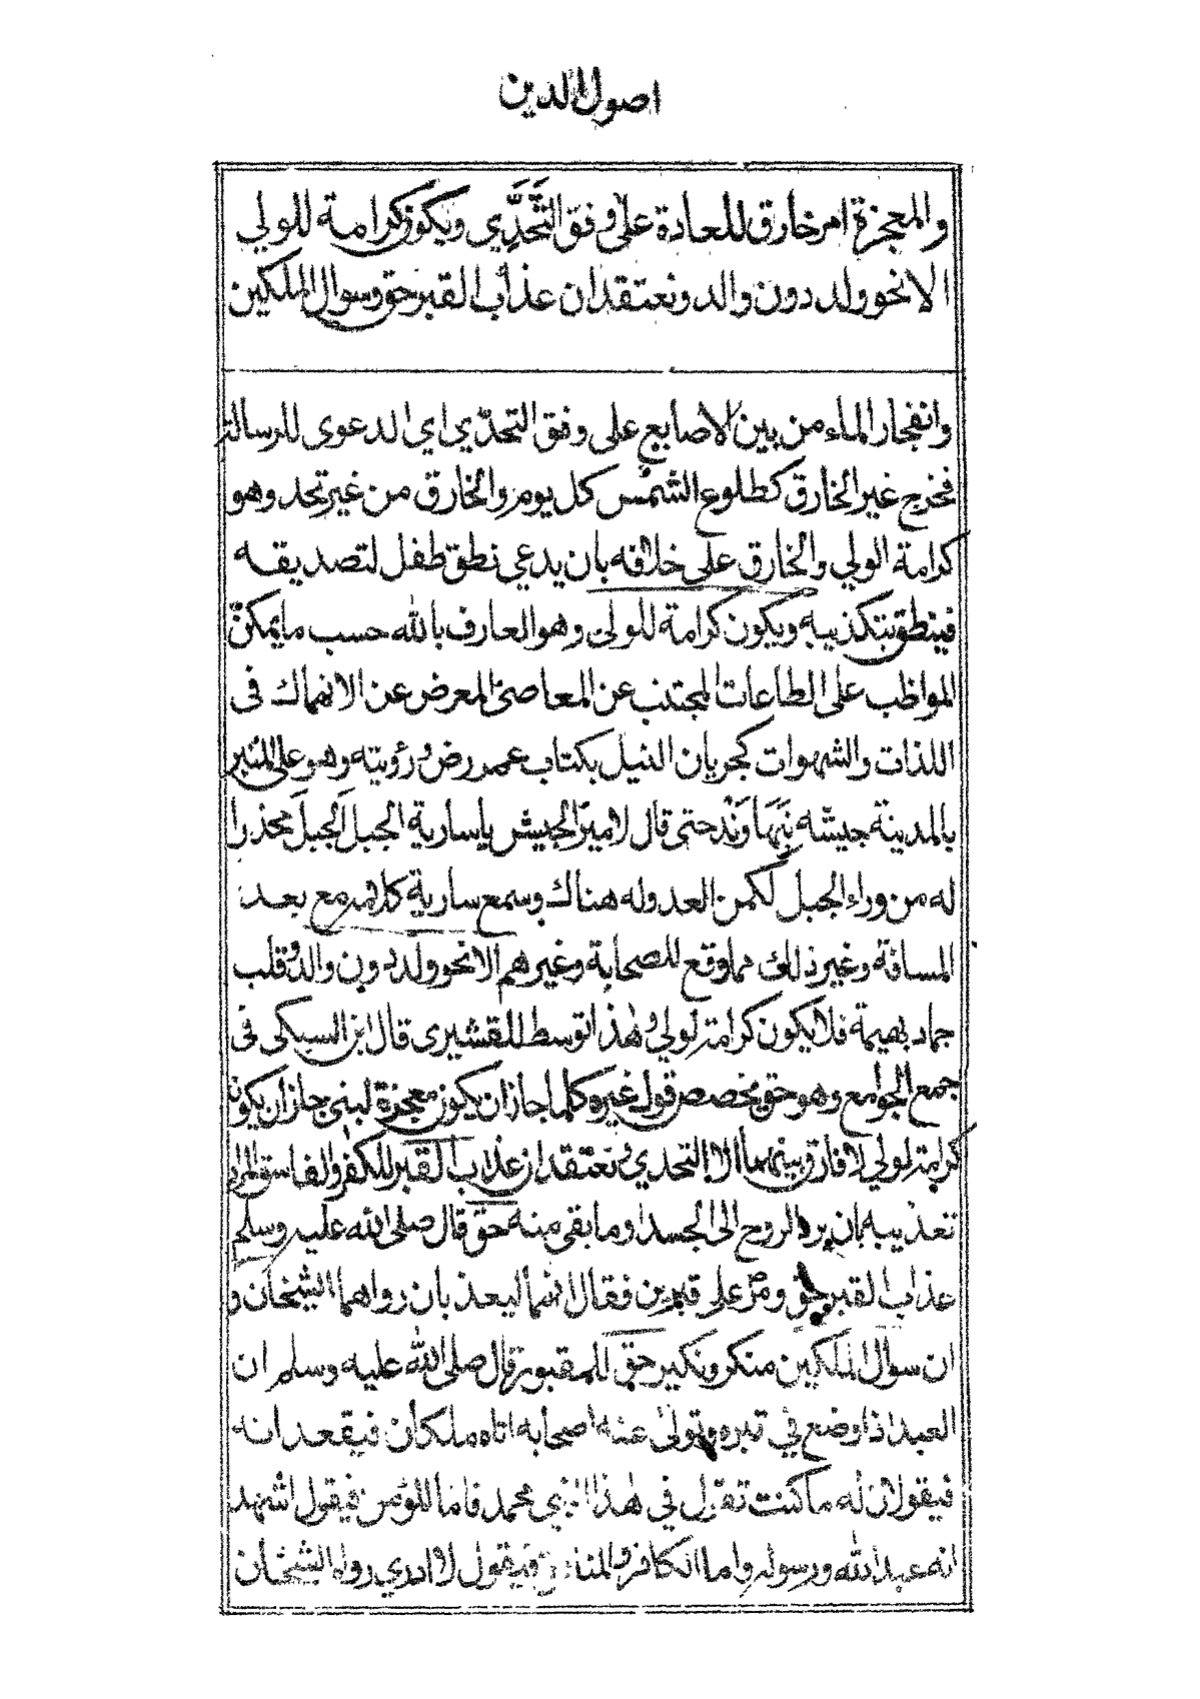 اصول الدين
والمعجزة امر خارق للعادة على وفق التَّحَدِّي ويكون كرامة للولي
الا نحو ولد دون والد ونعتقد ان عذاب القبر حق وسوال الملكين
وانفجار الماء من بين الاصابع على وفق التحدّي اي الدعوى للرسالة
فخرج غير الخارق كطلوع الشمس كل يوم والخارق من غير تحد وهو
كرامة الولي والخارق على خلافه بان يدعي نطق طفل لتصديقه
فينطق بتكذيبه ويكون كرامة للولي وهو العارف بالله حسب ما يمكن
المواظب على الطاعات المجتنب عن المعاصي المعرض عن الانهماك في
اللذات والشهوات كجريان النيل بكتاب عمر رض ورؤيته وهو على المنبر
بالمدينة جيشه بنَهَاوَنْد حتى قال لامير الجيش ياسارية الجبلَ الجبلَ محذرا
له من وراء الجبل لكمن العدو له هناك وسمع سارية كلامه مع بعد
المسافة وغير ذلك مما وقع للصحابة وغيرهم الا نحو ولد دون والد وقلب
جماد بهيمة فلا يكون كرامة لولي وهٰذا توسط للقشيرى قال ابن السبكى فى
جمع الجوامع وهو حق مخصص قول غيره كلما جاز ان يكون معجزة لنبي جاز ان يكون
كرامة لولي لا فارق بينهما الا التحدي ونعتقد ان عذاب القبر للكفر والفاسق المراد
تعذيبه بان يرد الروح الى الجسد او ما بقى منه حق قال صلى الله عليه وسلم
عذاب القبر حق ومرّ على قبرين فقال انهما ليعذبان رواهما الشيخان و
ان سوال الملكين منكر ونكير حق للمقبور قال صلى الله عليه وسلم ان
العبد اذا وضع في قبره وتولى عنه اصحابه اتاه ملكان فيقعدانه
فيقولان له ما كنت تقول في هٰذا النبي محمد فاما المؤمن فيقول اشهد
انه عبد الله ورسوله واما الكافر والمنافق فيقول لا ادري رواه الشيخان